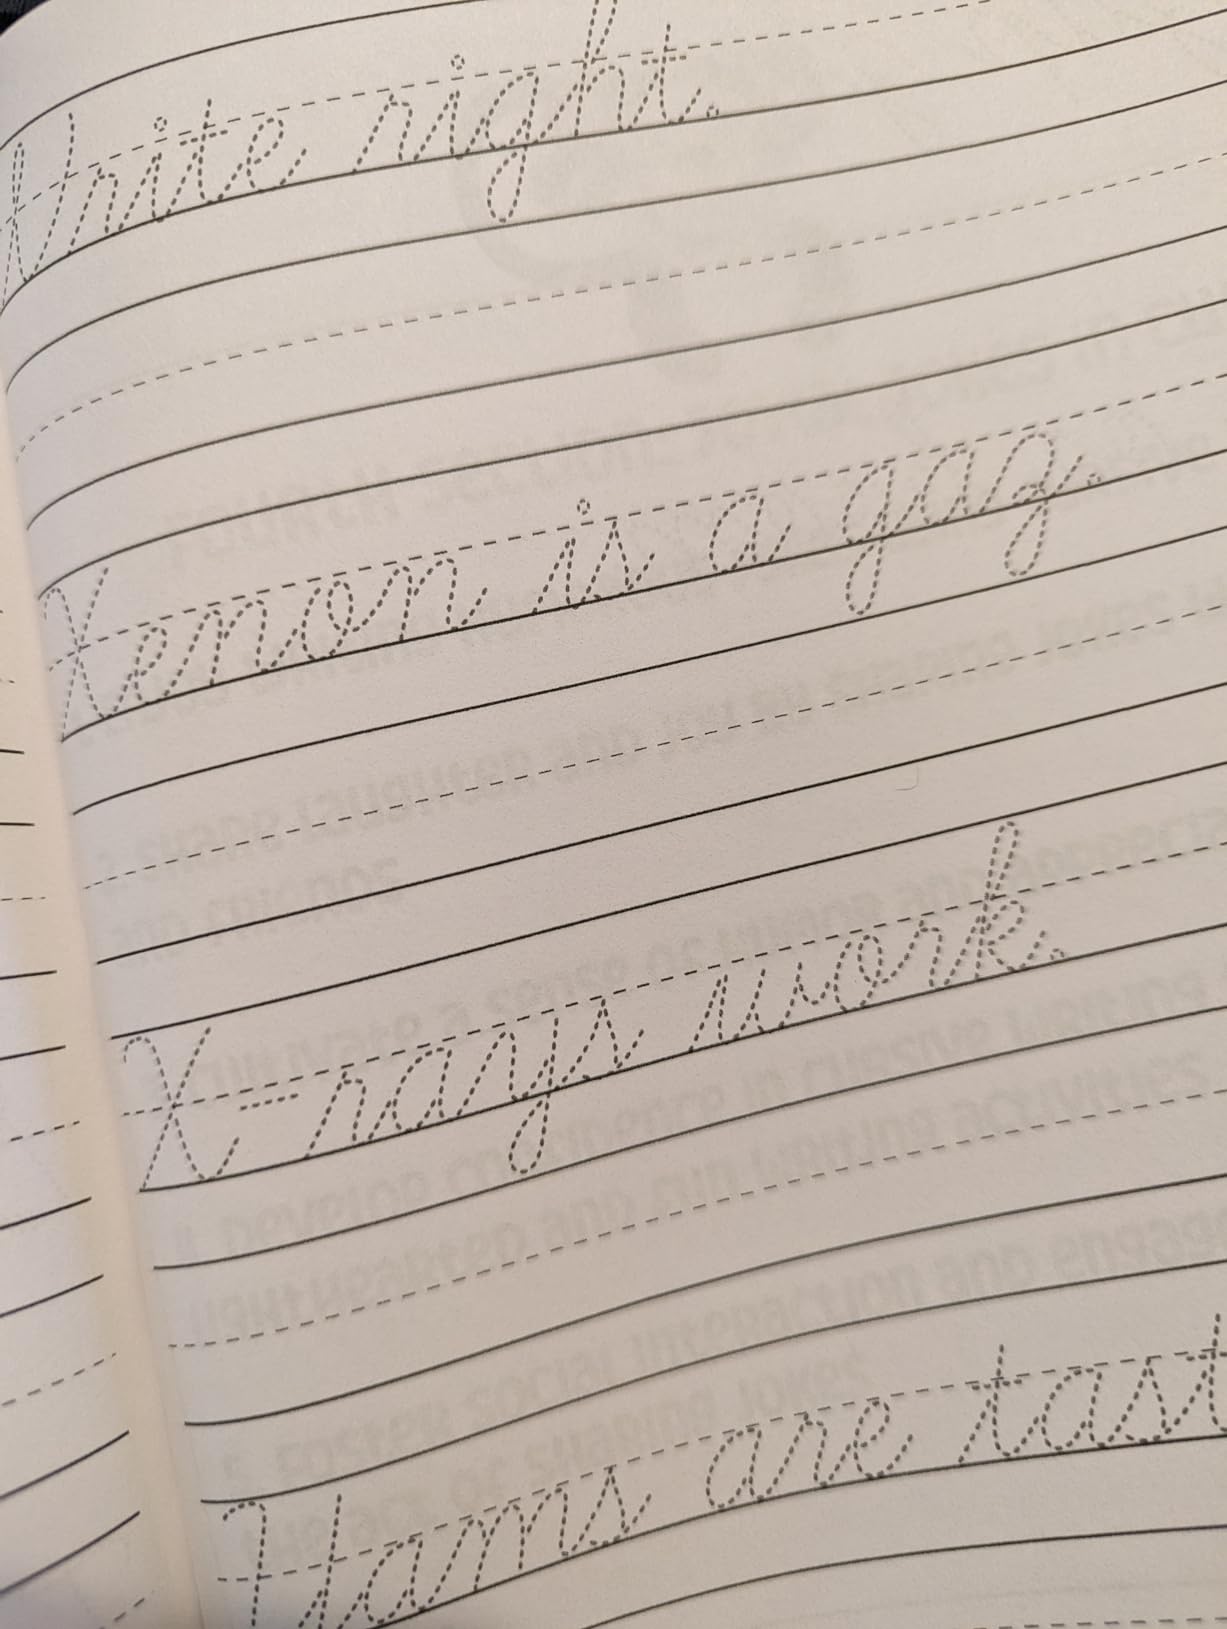 Write right.
Xenon is a gaz.
X-rays work.
Hams are tast